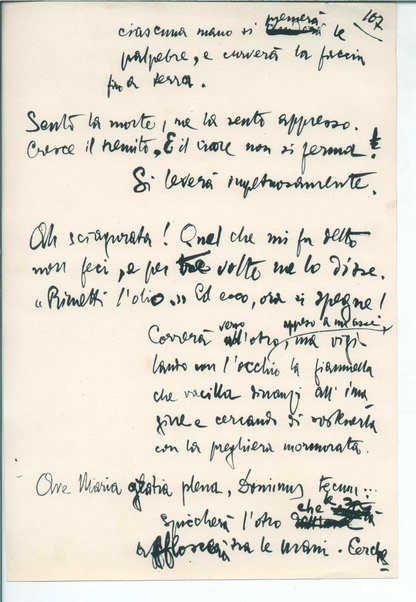 107
ciascuna mano si premerà le
palpebre, e curverà la faccia
fino a terra.
Sento la morte, me la sento appresso.
Cresce il tremito. E il cuore non si ferma!
Si leverà impetuosamente.
Oh sciagurata! Quel che mi fu detto
non feci, e per tre volte me lo disse.
"Rimetti l'olio." Ed ecco, ora si spegne!
Correrà verso l'otro, appeso a un asse, ma vigi-
lando con l'occhio la fiammella
che vacilla dinanzi all'ima-
gine e cercando di sostenerla
con la preghiera mormorata.
Ave Maria gratia plena, Dominus tecum...
Spiccherà l'otro che le si
affloscerà tra le mani. Cerche-